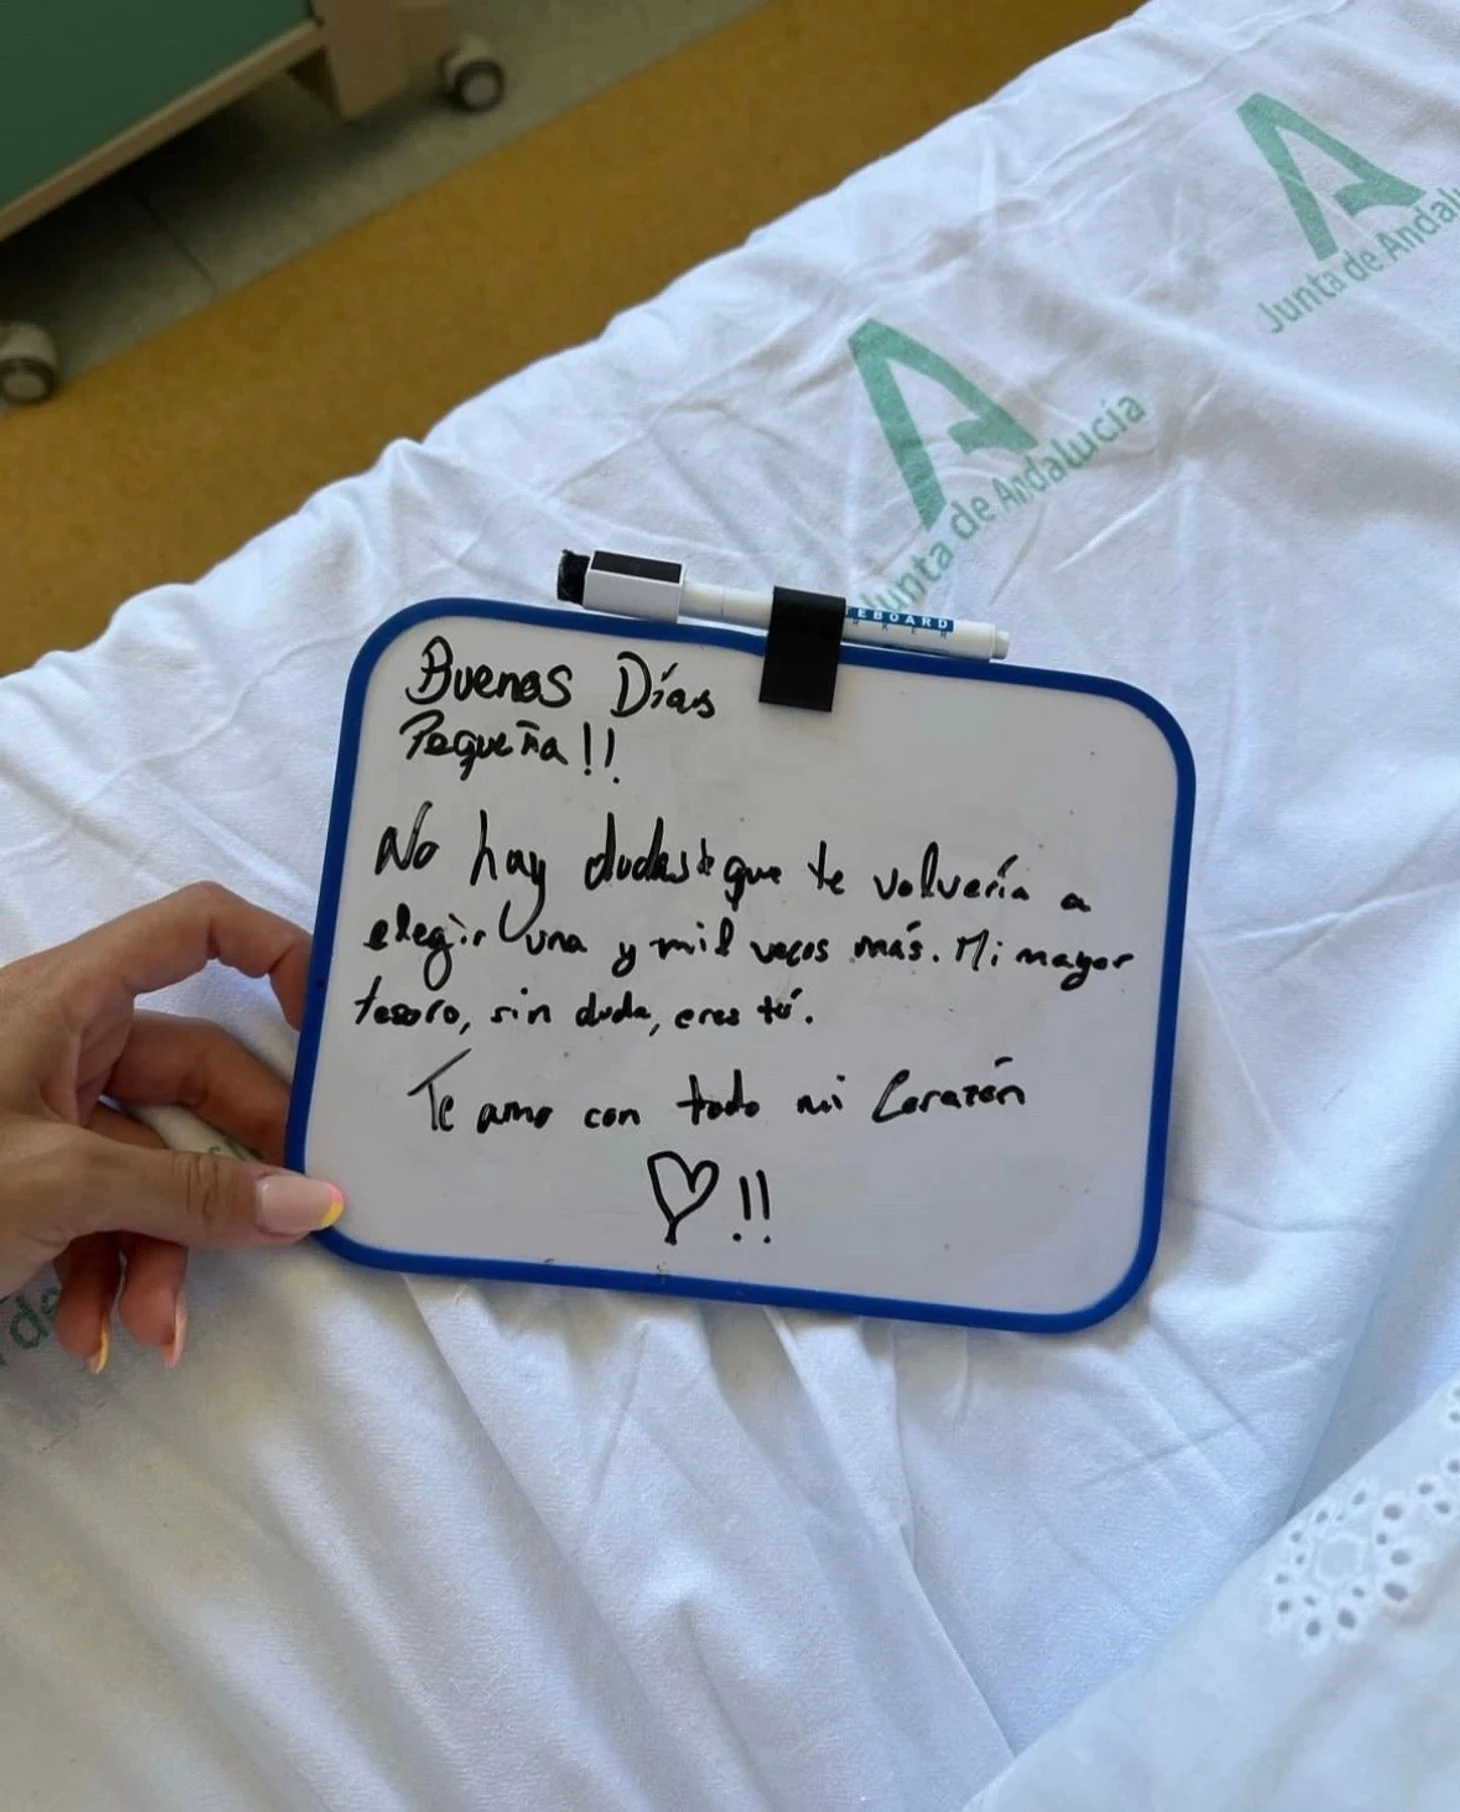 Junta de Andalu
Junta de Andalucía
EBOARD
Buenos Días
Pequeña!!
No hay dudas de que te volvería a
elegir una y mil veces más. Mi mayor
tesoro, sin duda, eres tú.
Te amo con todo mi Corazón
!!
de